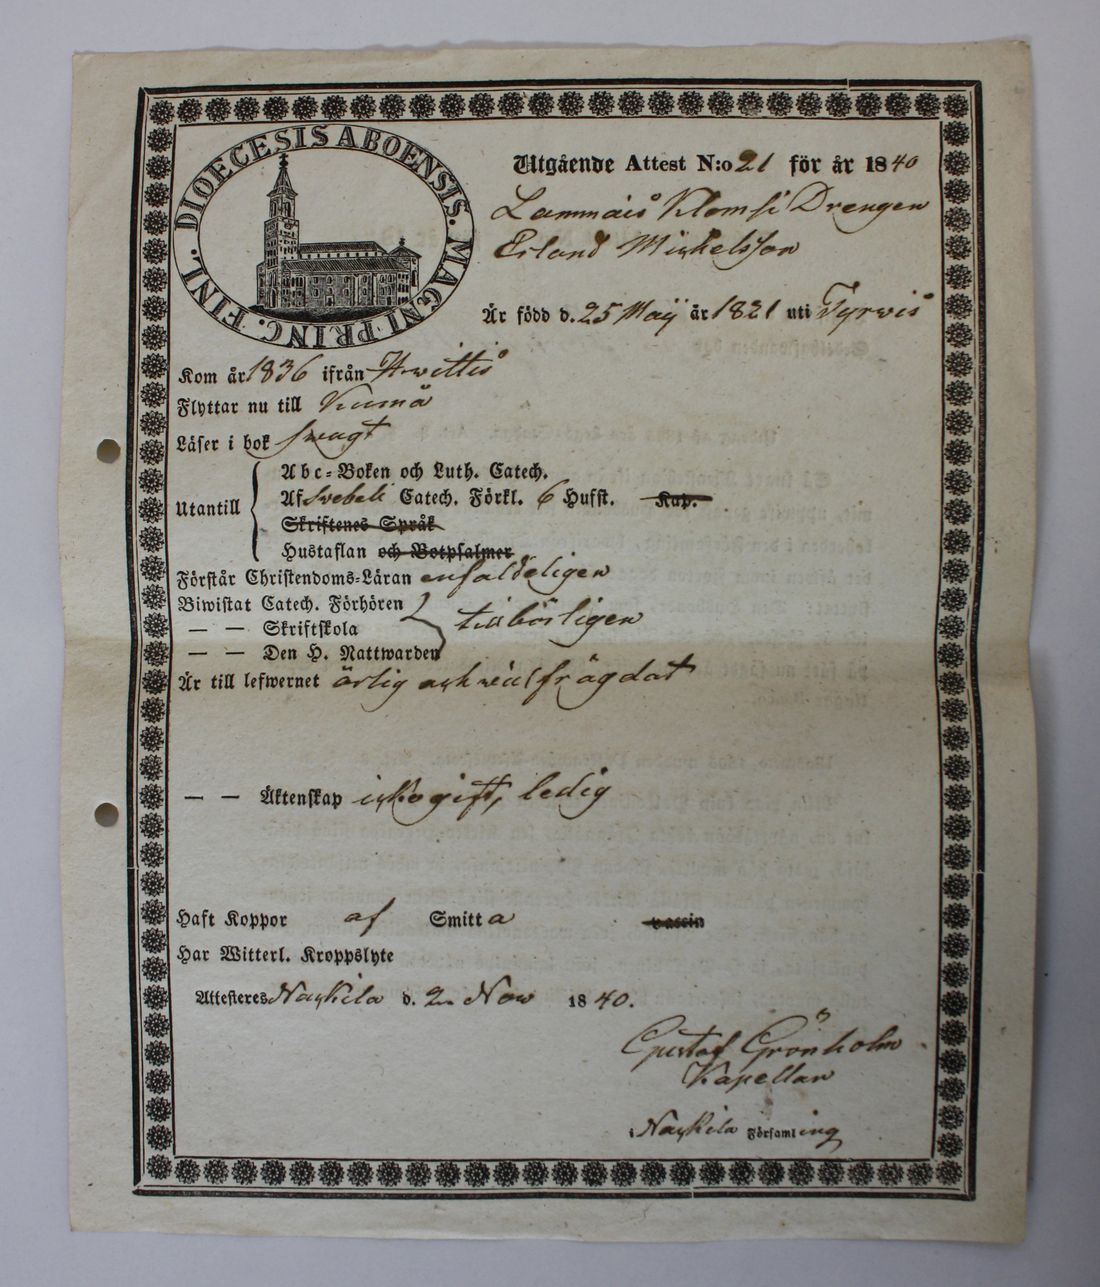 DIOECESIS ABOENSIS. MAGNI PRINC. FINL.
Utgående Attest N:o 21 för år 1840
Lammais Klomsi Drengen
Erland Mickelsson
Är född d. 25 Maij år 1821 uti Tyrwis
Kom år 1836 ifrån Hwittis
Flyttar nu till Kumå
Läser i bok swagt
Abc-Boken och Luth. Catech.
Utantill
Af Svebeli Catech. Förkl. 6 Hufst. Kap.
Skriftenes Språk
Hustaflan och Botpsalmer
Förstår Christendoms-Läran enfaldeligen
Biwistat Catech. Förhören
— — Skriftskola tillbörligen
— — Den H. Nattwarden
Är till lefwernet ärlig och wälfrägdat
— — Äktenskap icke gift, ledig
Haft Koppor af Smitta vaccin
Har Witterl. Kroppslyte
Attesteres Nackila d. 2 Nov 1840.
Gustaf Grönholm
Kapellan
i Nackila Församling